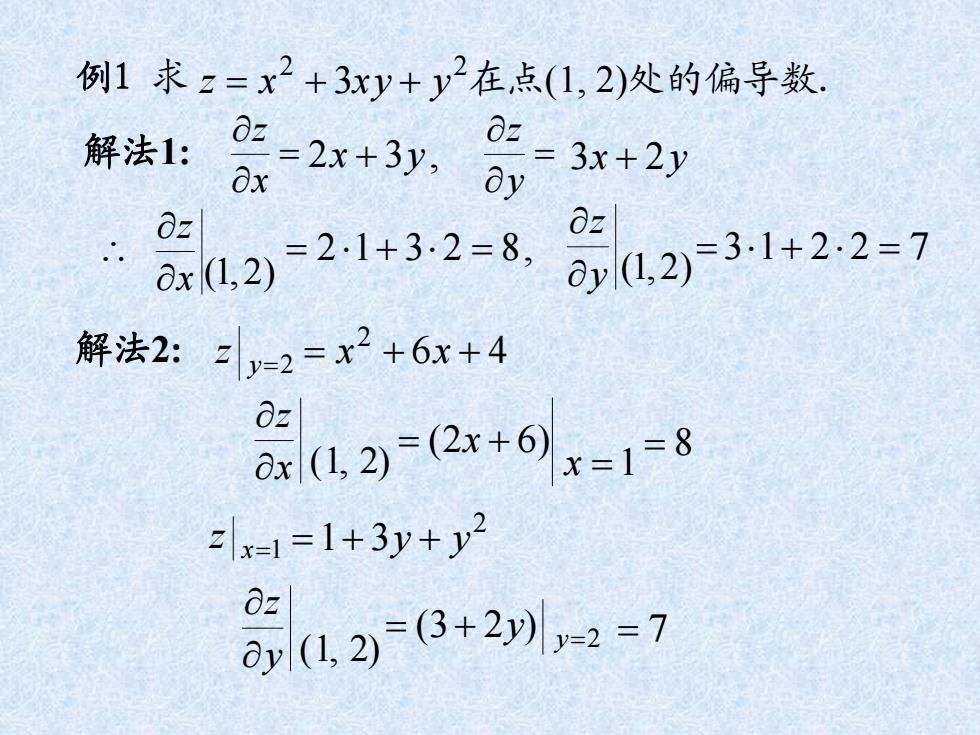 例1 求 z = x² + 3xy + y² 在点(1, 2)处的偏导数.
解法1: ∂z/∂x = 2x + 3y, ∂z/∂y = 3x + 2y
∴ ∂z/∂x|(1,2) = 2·1 + 3·2 = 8, ∂z/∂y|(1,2) = 3·1 + 2·2 = 7
解法2: z|y=2 = x² + 6x + 4
∂z/∂x|(1, 2) = (2x + 6)|x = 1 = 8
z|x=1 = 1 + 3y + y²
∂z/∂y|(1, 2) = (3 + 2y)|y=2 = 7